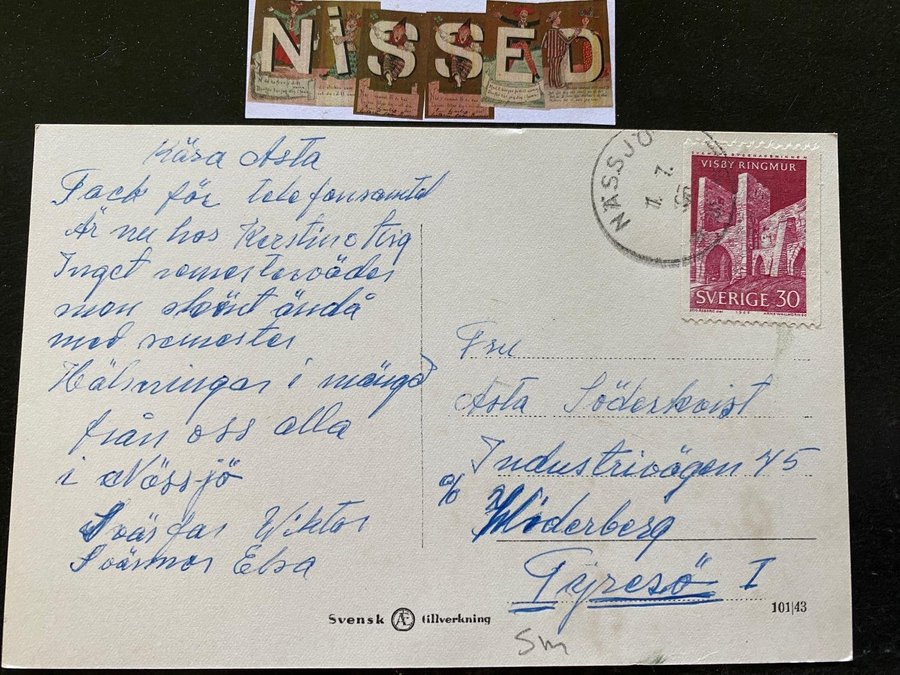 NISSED
Kära Asta
Tack för telefonsamtal
Är nu hos Kerstin o Stig
Inget semesterväder
men skönt ändå
med semester
Hälsningar i mängd
från oss alla
i Nässjö
Svärfar Wiktor
Svärmor Elsa
NÄSSJÖ
7.
VISBY RINGMUR
SVERIGE 30
Fru
Asta Söderkvist
Industrivägen 45
c/o Söderberg
Tyresö I
Svensk Æ tillverkning
101/43
Sm